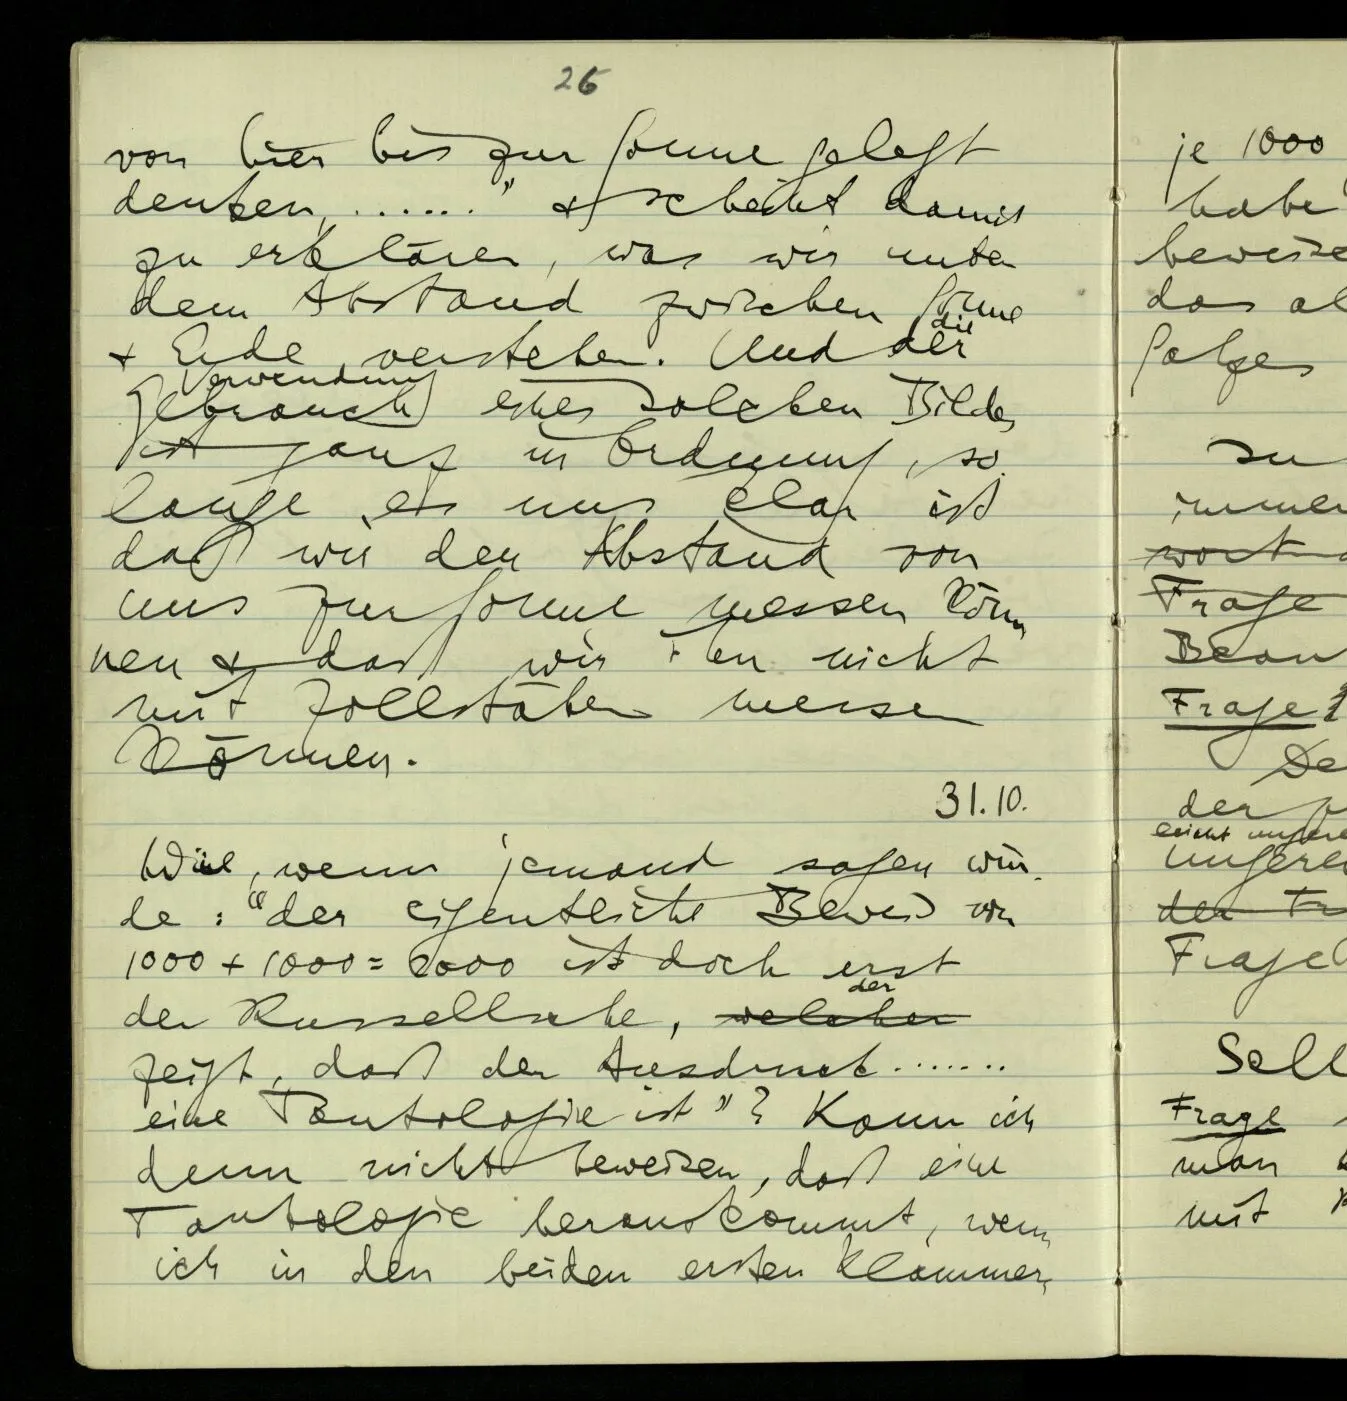 26
von hier bis zur Sonne gelegt
denken, ......" & scheint damit
zu erklären, was wir unter
dem Abstand zwischen Sonne
+ Erde verstehen. Und der die
Gebrauch Verwendung eines solchen Bildes
ist ganz in Ordnung, so
lange es uns klar ist
daß wir den Abstand von
uns zur Sonne messen kön
nen & daß wir ihn nicht
mit Zollstäben messen
können.
31.10.
Wie, wenn jemand sagen wür-
de: "der eigentliche Beweis von
1000 + 1000 = 2000 ist doch erst
der Russellsche, welcher der
zeigt, daß der Ausdruck .......
eine Tautologie ist"? Kann ich
denn nicht beweisen, daß eine
Tautologie herauskommt, wenn
ich in den beiden ersten Klammern
je 1000
habe
beweise
das al
Folges
Zu
immer
wort
Frage
Bean
Frage
De
der
nicht unsere
unsere
der Fr
Frage
Sell
Frage
man
mit